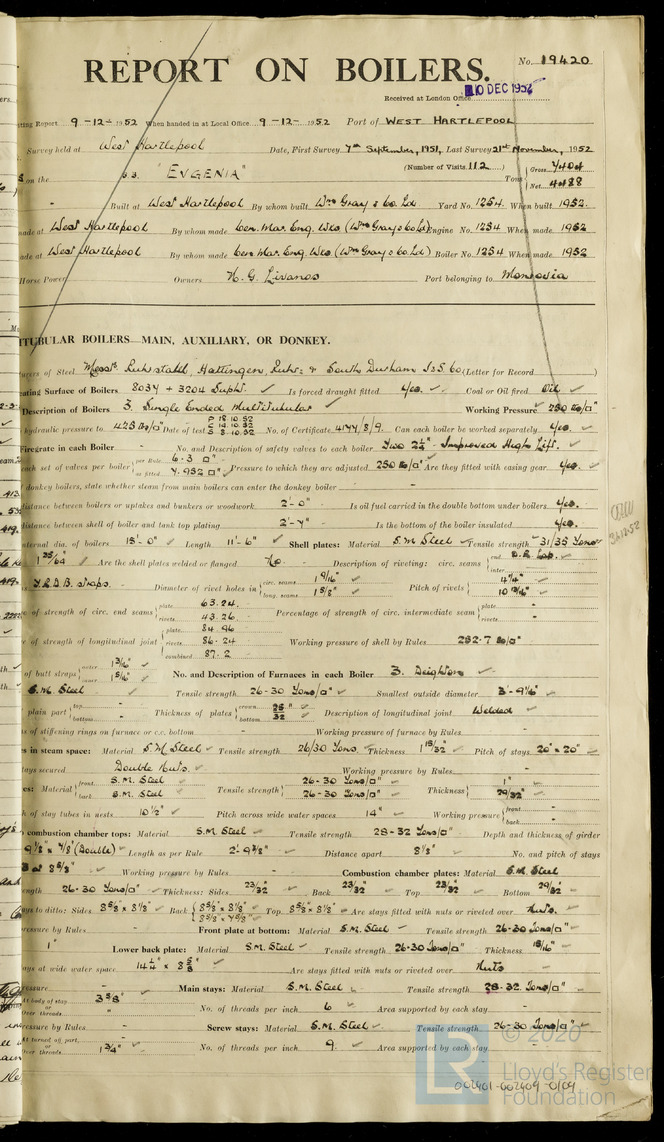 No. 19420
REPORT ON BOILERS.
10 DEC 1952
Received at London Office
ting Report 9-12-1952 When handed in at Local Office 9-12-1952 Port of WEST HARTLEPOOL
Survey held at West Hartlepool Date, First Survey 7th September, 1951, Last Survey 21st November, 1952
(Number of Visits 112)
on the s.s. "EVGENIA" Tons Gross 7404 Net 4088
Built at West Hartlepool By whom built Wm Gray & Co. Ld Yard No. 1254 When built 1952
made at West Hartlepool By whom made Cen. Mar. Eng. Wks (Wm Gray & Co Ld) Engine No. 1254 When made 1952
ade at West Hartlepool By whom made Cen. Mar. Eng. Wks. (Wm Gray & Co. Ld) Boiler No. 1254 When made 1952
Horse Power Owners N. G. Livanos Port belonging to Monrovia
TUBULAR BOILERS—MAIN, AUXILIARY, OR DONKEY.
urers of Steel Messrs. Ruhrstahl, Hattingen, Ruhr: & South Durham I & S. Co (Letter for Record )
ating Surface of Boilers 8034 + 3204 Supht. ✓ Is forced draught fitted Yes. ✓ Coal or Oil fired Oil ✓
Description of Boilers 3. Single Ended Multitubular ✓ Working Pressure 250 lb/□"
hydraulic pressure to 425 lb/□" Date of test P 18.10.52 C 14.10.52 S 8.10.52 No. of Certificate 4177/8/9. Can each boiler be worked separately Yes. ✓
Firegrate in each Boiler No. and Description of safety valves to each boiler Two 2¼" Improved High Lift. ✓
each set of valves per boiler per Rule 6.3 □" as fitted 7.952 □" Pressure to which they are adjusted 250 lb/□" Are they fitted with easing gear Yes. ✓
donkey boilers, state whether steam from main boilers can enter the donkey boiler -
distance between boilers or uptakes and bunkers or woodwork 2'-0" Is oil fuel carried in the double bottom under boilers Yes.
distance between shell of boiler and tank top plating 2'-7" Is the bottom of the boiler insulated Yes.
nternal dia. of boilers 15'-0" ✓ Length 11'-6" ✓ Shell plates: Material S.M Steel ✓ Tensile strength 31/35 Tons
1 25/64 ✓ Are the shell plates welded or flanged No. Description of riveting: circ. seams end D.R. Lap. ✓ inter.
T.R.D.B. Straps. Diameter of rivet holes in circ. seams 1 9/16" ✓ long. seams 1 5/8" ✓ Pitch of rivets
e of strength of circ. end seams plate 63.24. rivets 43.26. Percentage of strength of circ. intermediate seam plate - rivets -
e of strength of longitudinal joint plate 84.96 rivets 86.24 combined 87.2 Working pressure of shell by Rules 252.7 lb/□"
of butt straps outer 1 3/16" inner 1 5/16" ✓ No. and Description of Furnaces in each Boiler 3. Deighton ✓
S.M. Steel Tensile strength 26-30 Tons/□" ✓ Smallest outside diameter 3'-9⅛" ✓
plain part top - bottom Thickness of plates crown bottom 25"/32 Description of longitudinal joint Welded ✓
s of stiffening rings on furnace or c.c. bottom - Working pressure of furnace by Rules -
es in steam space: Material S.M Steel ✓ Tensile strength 26/30 Tons. Thickness 1 15/32" ✓ Pitch of stays 20" × 20" ✓
tays secured Double Nuts. ✓ Working pressure by Rules -
es: Material front S.M. Steel back S.M. Steel Tensile strength 26-30 Tons/□" ✓ 26-30 Tons/□" ✓ Thickness 1" ✓ 29/32" ✓
h of stay tubes in nests 10½" ✓ Pitch across wide water spaces 14" ✓ Working pressure front - back -
combustion chamber tops: Material S.M. Steel ✓ Tensile strength 28-32 Tons/□" ✓ Depth and thickness of girder
9⅛" × ⅞" (Double) ✓ Length as per Rule 2'-9⅜" ✓ Distance apart 8⅛" ✓ No. and pitch of stays
3 at 8⅝" ✓ Working pressure by Rules - Combustion chamber plates: Material S.M. Steel
ength 26-30 Tons/□" ✓ Thickness: Sides 23/32" ✓ Back 23/32" ✓ Top 23/32" ✓ Bottom 29/32" ✓
ays to ditto: Sides 8⅝" × 8⅛" ✓ Back 8⅝" × 8⅛" 8⅝" × 7⅝" ✓ Top 8⅝" × 8⅛" ✓ Are stays fitted with nuts or riveted over Nuts. ✓
ressure by Rules - Front plate at bottom: Material S.M. Steel ✓ Tensile strength 26-30 Tons/□"
1" Lower back plate: Material S.M. Steel ✓ Tensile strength 26-30 Tons/□" Thickness 15/16" ✓
ays at wide water space 14¼" × 8⅝ ✓ Are stays fitted with nuts or riveted over Nuts ✓
ressure - Main stays: Material S.M. Steel ✓ Tensile strength 28-32 Tons/□" ✓
At body of stay or Over threads 3⅝" ✓ No. of threads per inch 6 ✓ Area supported by each stay -
ressure by Rules - Screw stays: Material S.M. Steel ✓ Tensile strength 26-30 Tons/□" ✓
At turned off part or Over threads 1¾" ✓ No. of threads per inch 9. ✓ Area supported by each stay -
© 2020
LR
Lloyd's Register
Foundation
002401-002409-0104